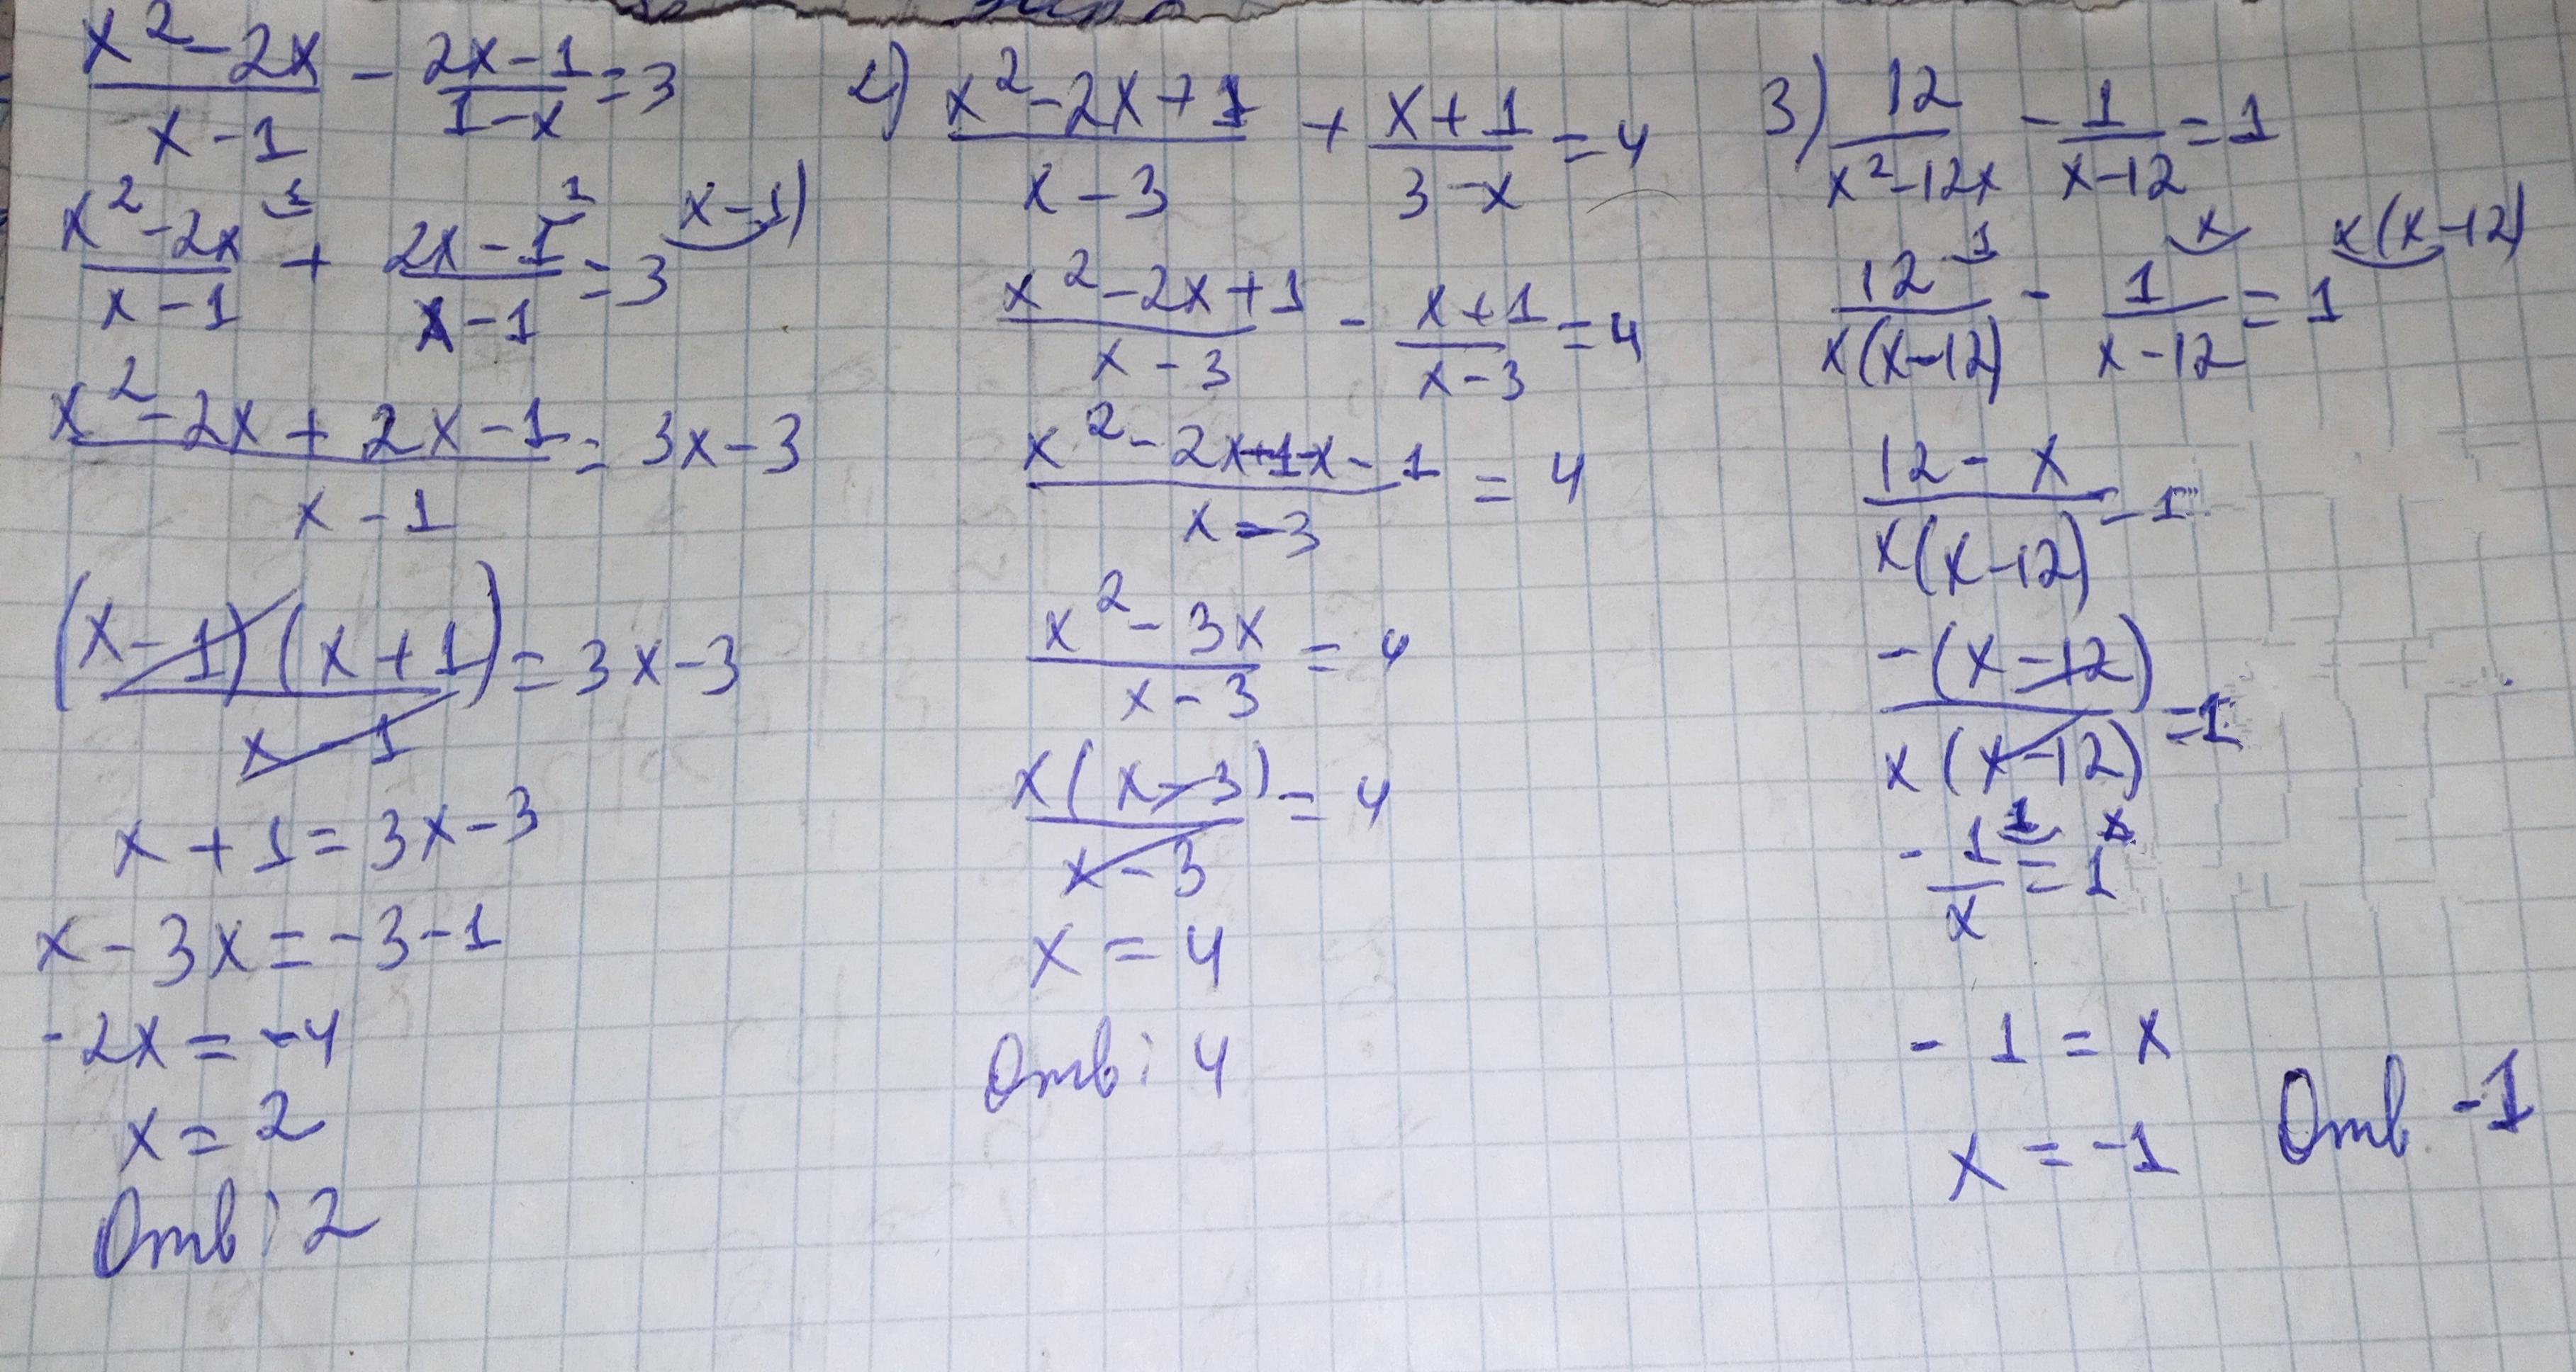 x² - 2x / x - 1 - 2x - 1 / 1 - x = 3
x² - 2x ¹ / x - 1 + 2x - 1 ¹ / x - 1 = 3 x - 1)
x² - 2x + 2x - 1 / x - 1 = 3x - 3
(x - 1)(x + 1) / x - 1 = 3x - 3
x + 1 = 3x - 3
x - 3x = -3 - 1
-2x = -4
x = 2
Отв: 2
2) x² - 2x + 1 / x - 3 + x + 1 / 3 - x = 4
x² - 2x + 1 / x - 3 - x + 1 / x - 3 = 4
x² - 2x + 1 - x - 1 / x - 3 = 4
x² - 3x / x - 3 = 4
x(x - 3) / x - 3 = 4
x = 4
Отв: 4
3) 12 / x² - 12x - 1 / x - 12 = 1
12 ¹ / x(x - 12) - 1 x / x - 12 = 1 x(x - 12)
12 - x / x(x - 12) - 1
-(x - 12) / x(x - 12) = 1
- 1 ¹ / x = 1 x
- 1 = x
x = -1
Отв. -1